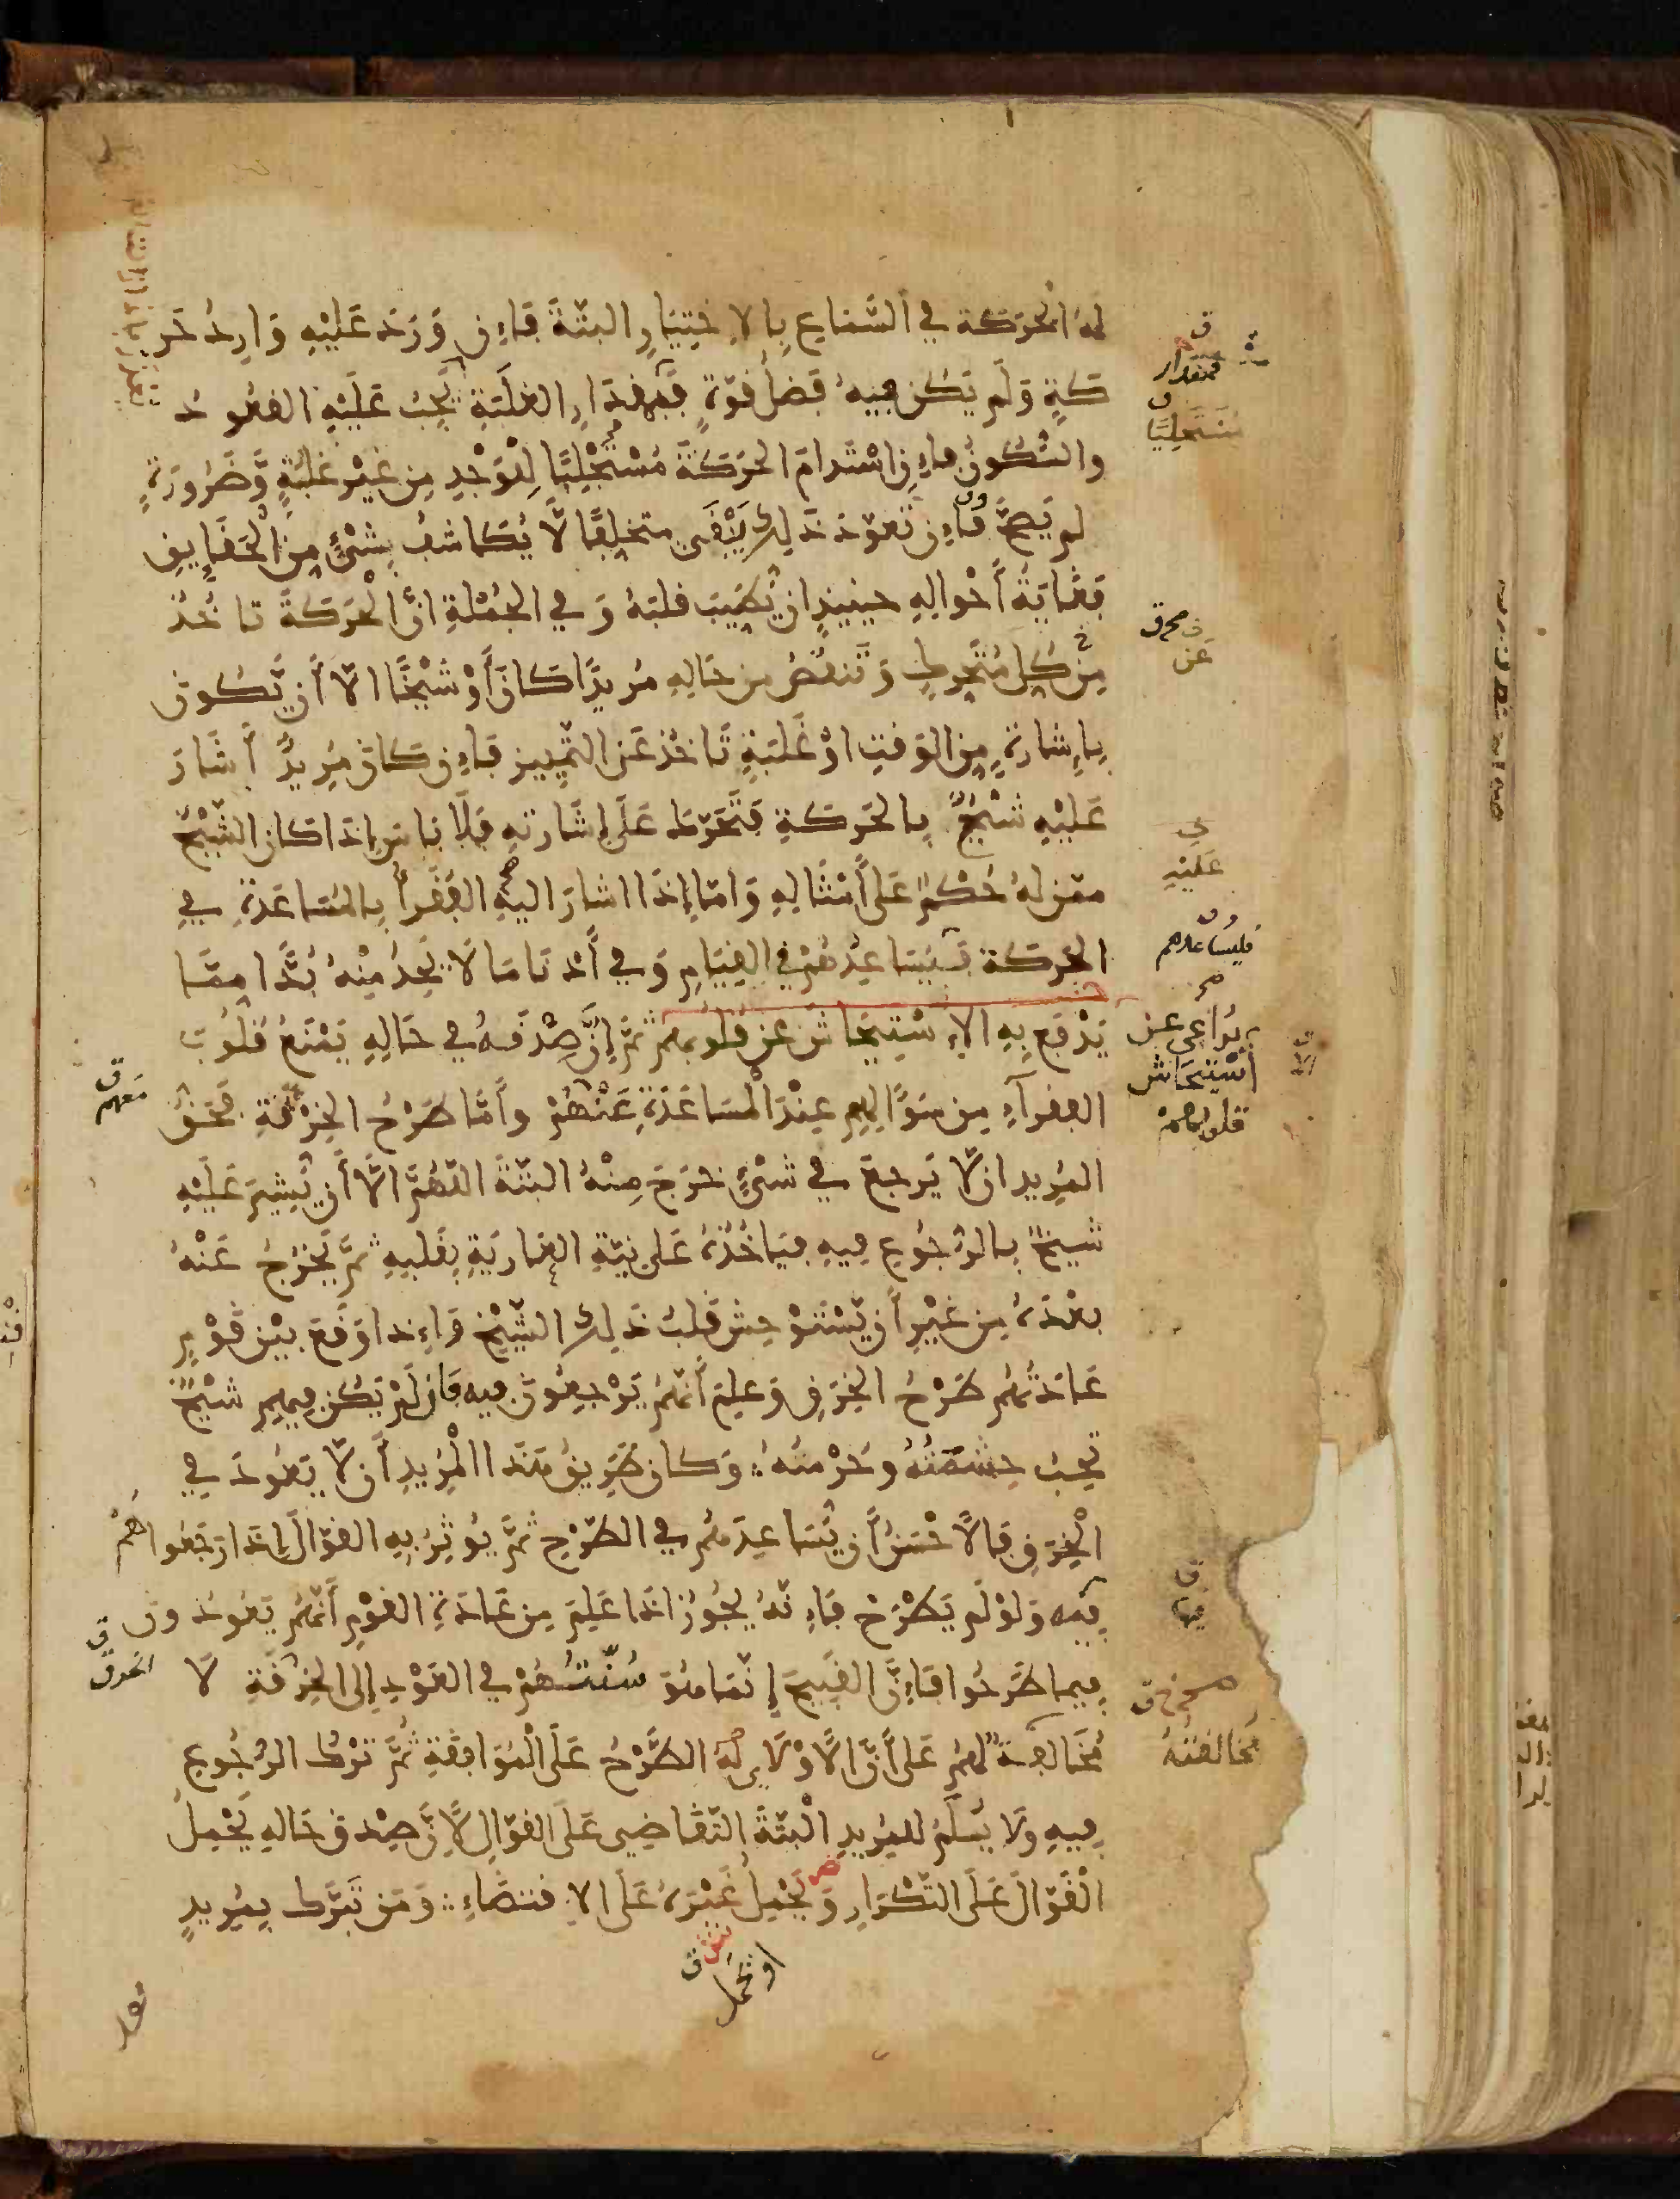 لَهُ الْحَرَكَة في السَّمَاعِ بِالاِخْتِيَارِ البتَّةَ فَإِن وَرَدَ عَلَيْهِ وَارِدُ حَرَ
كَةٍ وَلَمْ يَكُن فِيهُ فَضْلُ قُوَّةٍ فَبِمِقْدَارِ الغَلَبَةِ يَجِبُ عَلَيْهِ القعُودُ
والسُّكُونُ فإِنِ اسْتَدامَ الحَرَكَةَ مُسْتَجْلِبًا لِلْوَجْدِ مِن غَيْر غَلَبَةٍ وَّضَرُورَةٍ
لم يَصِحَّ فَإِن تَعَوَّدَ ذَلِكَ يَبْقَى متخلِفًا لَّا يُكَاشفُ بِشَيْءٍ مِنَ الْحَقَايِقِ
فَغَايَةُ أَحْوالِهِ حينيذٍ ان يُّطَيِّبَ قلبَهُ وَفي الجُمْلَةِ انَّ الْحَرَكَةَ تاخُذُ
مِنْ كُلِّ مُتَحرِكٍ وَتَنقُصُ من حَالِهِ مُرِيدًا كَانَ أَوْ شَيْخًا الَّا أَن يَّكُونَ
بِإِشَارَةٍ مِنَ الوَقتِ اوْ غَلَبَةٍ تَاخُذ عَن التمْيِيز فَإِن كَانَ مُرِيدًا أَشَارَ
عَلَيْهِ شَيْخٌ بالحَرَكةِ فَتَحَرّكَ عَلَى إِشَارَتِهِ فَلَا بَاسَ إِذَا كَانَ الشَّيْخُ
ممَّن لهُ حُكْمٌ عَلى أَمْثَالِهِ وَامّا إِذَا اشارَ اليهِ الفُقَرَآ بِالمُسَاعَدَةِ في
الحرَكَة فَيُسَاعِدُهُمْ في القِيَامِ وَفي أَدْنَا مَا لَا يَجِدُ مِنْهُ بُدًّا مِمَّا
يَدْفَع بِهِ الاِسْتِيحَاشَ عَن قُلوبهم ثمَّ إِنَّ صِدْقَهُ في حَالِهِ يَمْنَعُ قُلُوبَ
الفقرآءِ مِن سُؤَالِهِم عِنْدَ الْمُسَاعَدَةِ عَنْهُمْ وأَمَّا طَرْحُ الخِرْقَةِ فحَقُّ
المُرِيد ان لَّا يَرجعَ في شَيْءٍ خرَجَ مِنْهُ البتَّةَ اللّهُمَّ الَّا أَن يُّشِيرَ عَلَيْهِ
شَيخٌ بالرُّجُوعِ فِيهِ فيَاخُذُهُ عَلى نيَّةِ العَارِيَّةِ بِقَلبِهِ ثمَّ يَخْرُجُ عَنْهُ
بعْدَهُ مِن غَيْرِ أَن يَّسْتَوْحِشَ قَلبُ ذَلِكَ الشَّيْخِ وَإِذا وَقَعَ بَيْنَ قَوْمٍ
عَادَتُهُم طَرْحُ الخِرَقِ وَعلِمَ أَنَّهُمْ يَرْجِعُونَ فيه فَإن لَمْ يَكُن فِيهِم شَيْخٌ
تجِبُ حِشْمَتُهُ وَحُرْمَتُهُ وَكان طَرِيقُ هَذَا الْمُرِيدِ أَن لَّا يَعُودَ في
الْخِرَقِ فَالأَحْسَنُ أَن يُّسَاعِدَهُم في الطَّرْحِ ثمَّ يُوثِرُ بِهِ القوَّالَ إِذَا رَجَعُوا هُمْ
فِيهِ وَلوْ لَم يَطْرَحْ فَإِنّهُ يَجُوزُ اذَا عَلِمَ مِن عَادَةِ القَوْمِ أَنَّهُم يَعُودُونَ
فيما طَرَحُوا فَإِنَّ القَبِيحَ إِنّمَا هُوَ سُنَّتُهُمْ في العَوْدِ إلى الخِرْقَةِ لَا
مُخَالفَةٌ لهُم عَلى أَنَّ الأَوْلَى لَهُ الطَّرْحُ عَلَى الْمُوَافَقَةِ ثُمَّ تَرْكُ الرُّجُوعِ
فِيهِ ولَا يُسَلَّمُ لِلمُرِيدِ الْبَتَّةَ التّقَاضِي عَلَى القوّالِ لِأَنَّ صِدْقَ حَالِهِ يَحْمِلُ
الْقَوَّالَ عَلَى التّكْرَارِ وَيَحْمِلُ غَيْرَهُ عَلَى الاِقتضَاءِ وَمَن تَبَرَّكَ بِمُرِيدٍ
فمقدار
مستجلبًا
عَن
عَلَيْهِ
فليُساعدهم
يُراعى عن
اسْتِيحَاش
قلوبهم
معهم
فيها
الخرق
مُخالفتُهُ
او يحمل